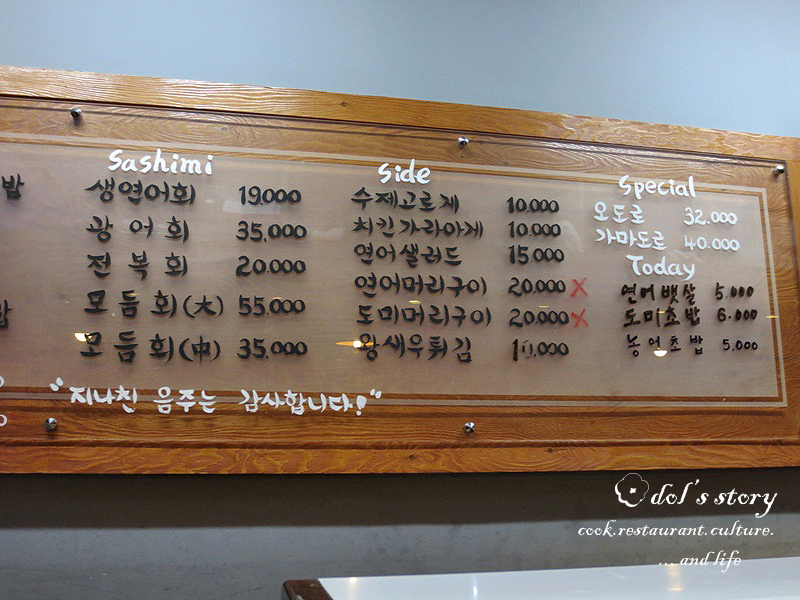 밥
밥
Sashimi
생연어회 19.000
광어회 35.000
전복회 20.000
모듬회(大) 55.000
모듬회(中) 35.000
Side
수제고로케 10.000
치킨가라아게 10.000
연어샐러드 15.000
연어머리구이 20.000 X
도미머리구이 20.000 X
왕새우튀김
Special
오도로 32.000
가마도로 40.000
Today
연어뱃살 5.000
도미초밥 6.000
농어초밥 5.000
"지나친 음주는 감사합니다!"
dol's story
cook.restaurant.culture.
... and life